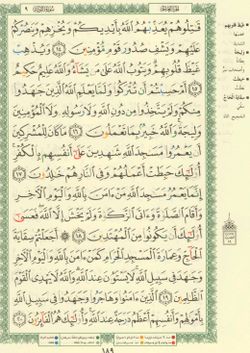 الجزء العاشر
سورة التوبة ٩
قَٰتِلُوهُمْ يُعَذِّبْهُمُ ٱللَّهُ بِأَيْدِيكُمْ وَيُخْزِهِمْ وَيَنصُرْكُمْ
عَلَيْهِمْ وَيَشْفِ صُدُورَ قَوْمٍ مُّؤْمِنِينَ ١٤ وَيُذْهِبْ
غَيْظَ قُلُوبِهِمْ وَيَتُوبُ ٱللَّهُ عَلَىٰ مَن يَشَآءُ وَٱللَّهُ عَلِيمٌ حَكِيمٌ
١٥ أَمْ حَسِبْتُمْ أَن تُتْرَكُوا۟ وَلَمَّا يَعْلَمِ ٱللَّهُ ٱلَّذِينَ جَٰهَدُوا۟
مِنكُمْ وَلَمْ يَتَّخِذُوا۟ مِن دُونِ ٱللَّهِ وَلَا رَسُولِهِۦ وَلَا ٱلْمُؤْمِنِينَ
وَلِيجَةً وَٱللَّهُ خَبِيرٌۢ بِمَا تَعْمَلُونَ ١٦ مَا كَانَ لِلْمُشْرِكِينَ
أَن يَعْمُرُوا۟ مَسَٰجِدَ ٱللَّهِ شَٰهِدِينَ عَلَىٰٓ أَنفُسِهِم بِٱلْكُفْرِ
أُو۟لَٰٓئِكَ حَبِطَتْ أَعْمَٰلُهُمْ وَفِى ٱلنَّارِ هُمْ خَٰلِدُونَ ١٧
إِنَّمَا يَعْمُرُ مَسَٰجِدَ ٱللَّهِ مَنْ ءَامَنَ بِٱللَّهِ وَٱلْيَوْمِ ٱلْءَاخِرِ
وَأَقَامَ ٱلصَّلَوٰةَ وَءَاتَى ٱلزَّكَوٰةَ وَلَمْ يَخْشَ إِلَّا ٱللَّهَ فَعَسَىٰٓ
أُو۟لَٰٓئِكَ أَن يَكُونُوا۟ مِنَ ٱلْمُهْتَدِينَ ١٨ أَجَعَلْتُمْ سِقَايَةَ
ٱلْحَآجِّ وَعِمَارَةَ ٱلْمَسْجِدِ ٱلْحَرَامِ كَمَنْ ءَامَنَ بِٱللَّهِ وَٱلْيَوْمِ ٱلْءَاخِرِ
وَجَٰهَدَ فِى سَبِيلِ ٱللَّهِ لَا يَسْتَوُۥنَ عِندَ ٱللَّهِ وَٱللَّهُ لَا يَهْدِى ٱلْقَوْمَ
ٱلظَّٰلِمِينَ ١٩ ٱلَّذِينَ ءَامَنُوا۟ وَهَاجَرُوا۟ وَجَٰهَدُوا۟ فِى سَبِيلِ ٱللَّهِ
بِأَمْوَٰلِهِمْ وَأَنفُسِهِمْ أَعْظَمُ دَرَجَةً عِندَ ٱللَّهِ وَأُو۟لَٰٓئِكَ هُمُ ٱلْفَآئِزُونَ ٢٠
غيظ قلوبهم
وليجة
حبطت
سقاية الحاج
١٨٩